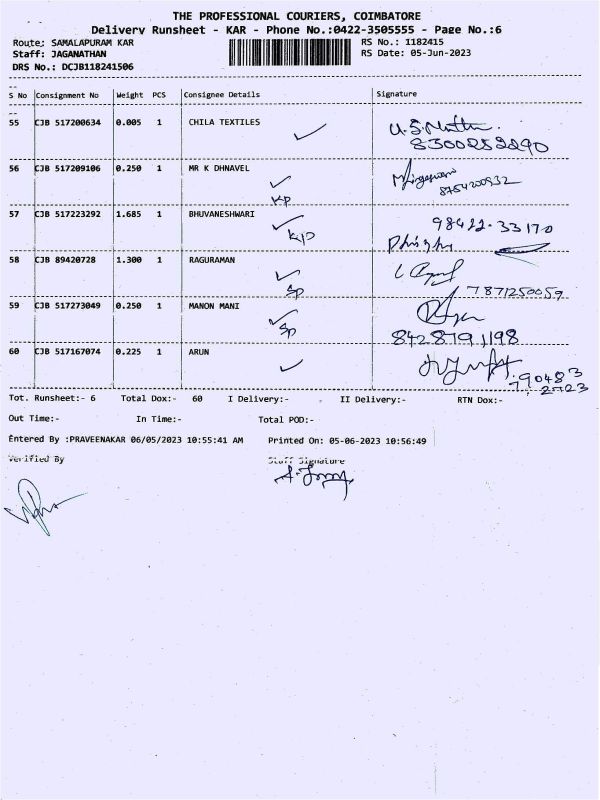 THE PROFESSIONAL COURIERS, COIMBATORE
Delivery Runsheet - KAR - Phone No.:0422-3505555 - Page No.:6
Route: SAMALAPURAM KAR RS No.: 1182415
Staff: JAGANATHAN RS Date: 05-Jun-2023
DRS No.: DCJB118241506
S No Consignment No Weight PCS Consignee Details Signature
55 CJB 517200634 0.005 1 CHILA TEXTILES
8300252290
56 CJB 517209106 0.250 1 MR K DHNAVEL
8754200932
KP
57 CJB 517223292 1.685 1 BHUVANESHWARI
98422-33170
K/P
58 CJB 89420728 1.300 1 RAGURAMAN
7871250059
SP
59 CJB 517273049 0.250 1 MANON MANI
SP
8428791198
60 CJB 517167074 0.225 1 ARUN
790483
2723
Tot. Runsheet:- 6 Total Dox:- 60 I Delivery:- II Delivery:- RTN Dox:-
Out Time:- In Time:- Total POD:-
Entered By :PRAVEENAKAR 06/05/2023 10:55:41 AM Printed On: 05-06-2023 10:56:49
Verified By Staff Signature